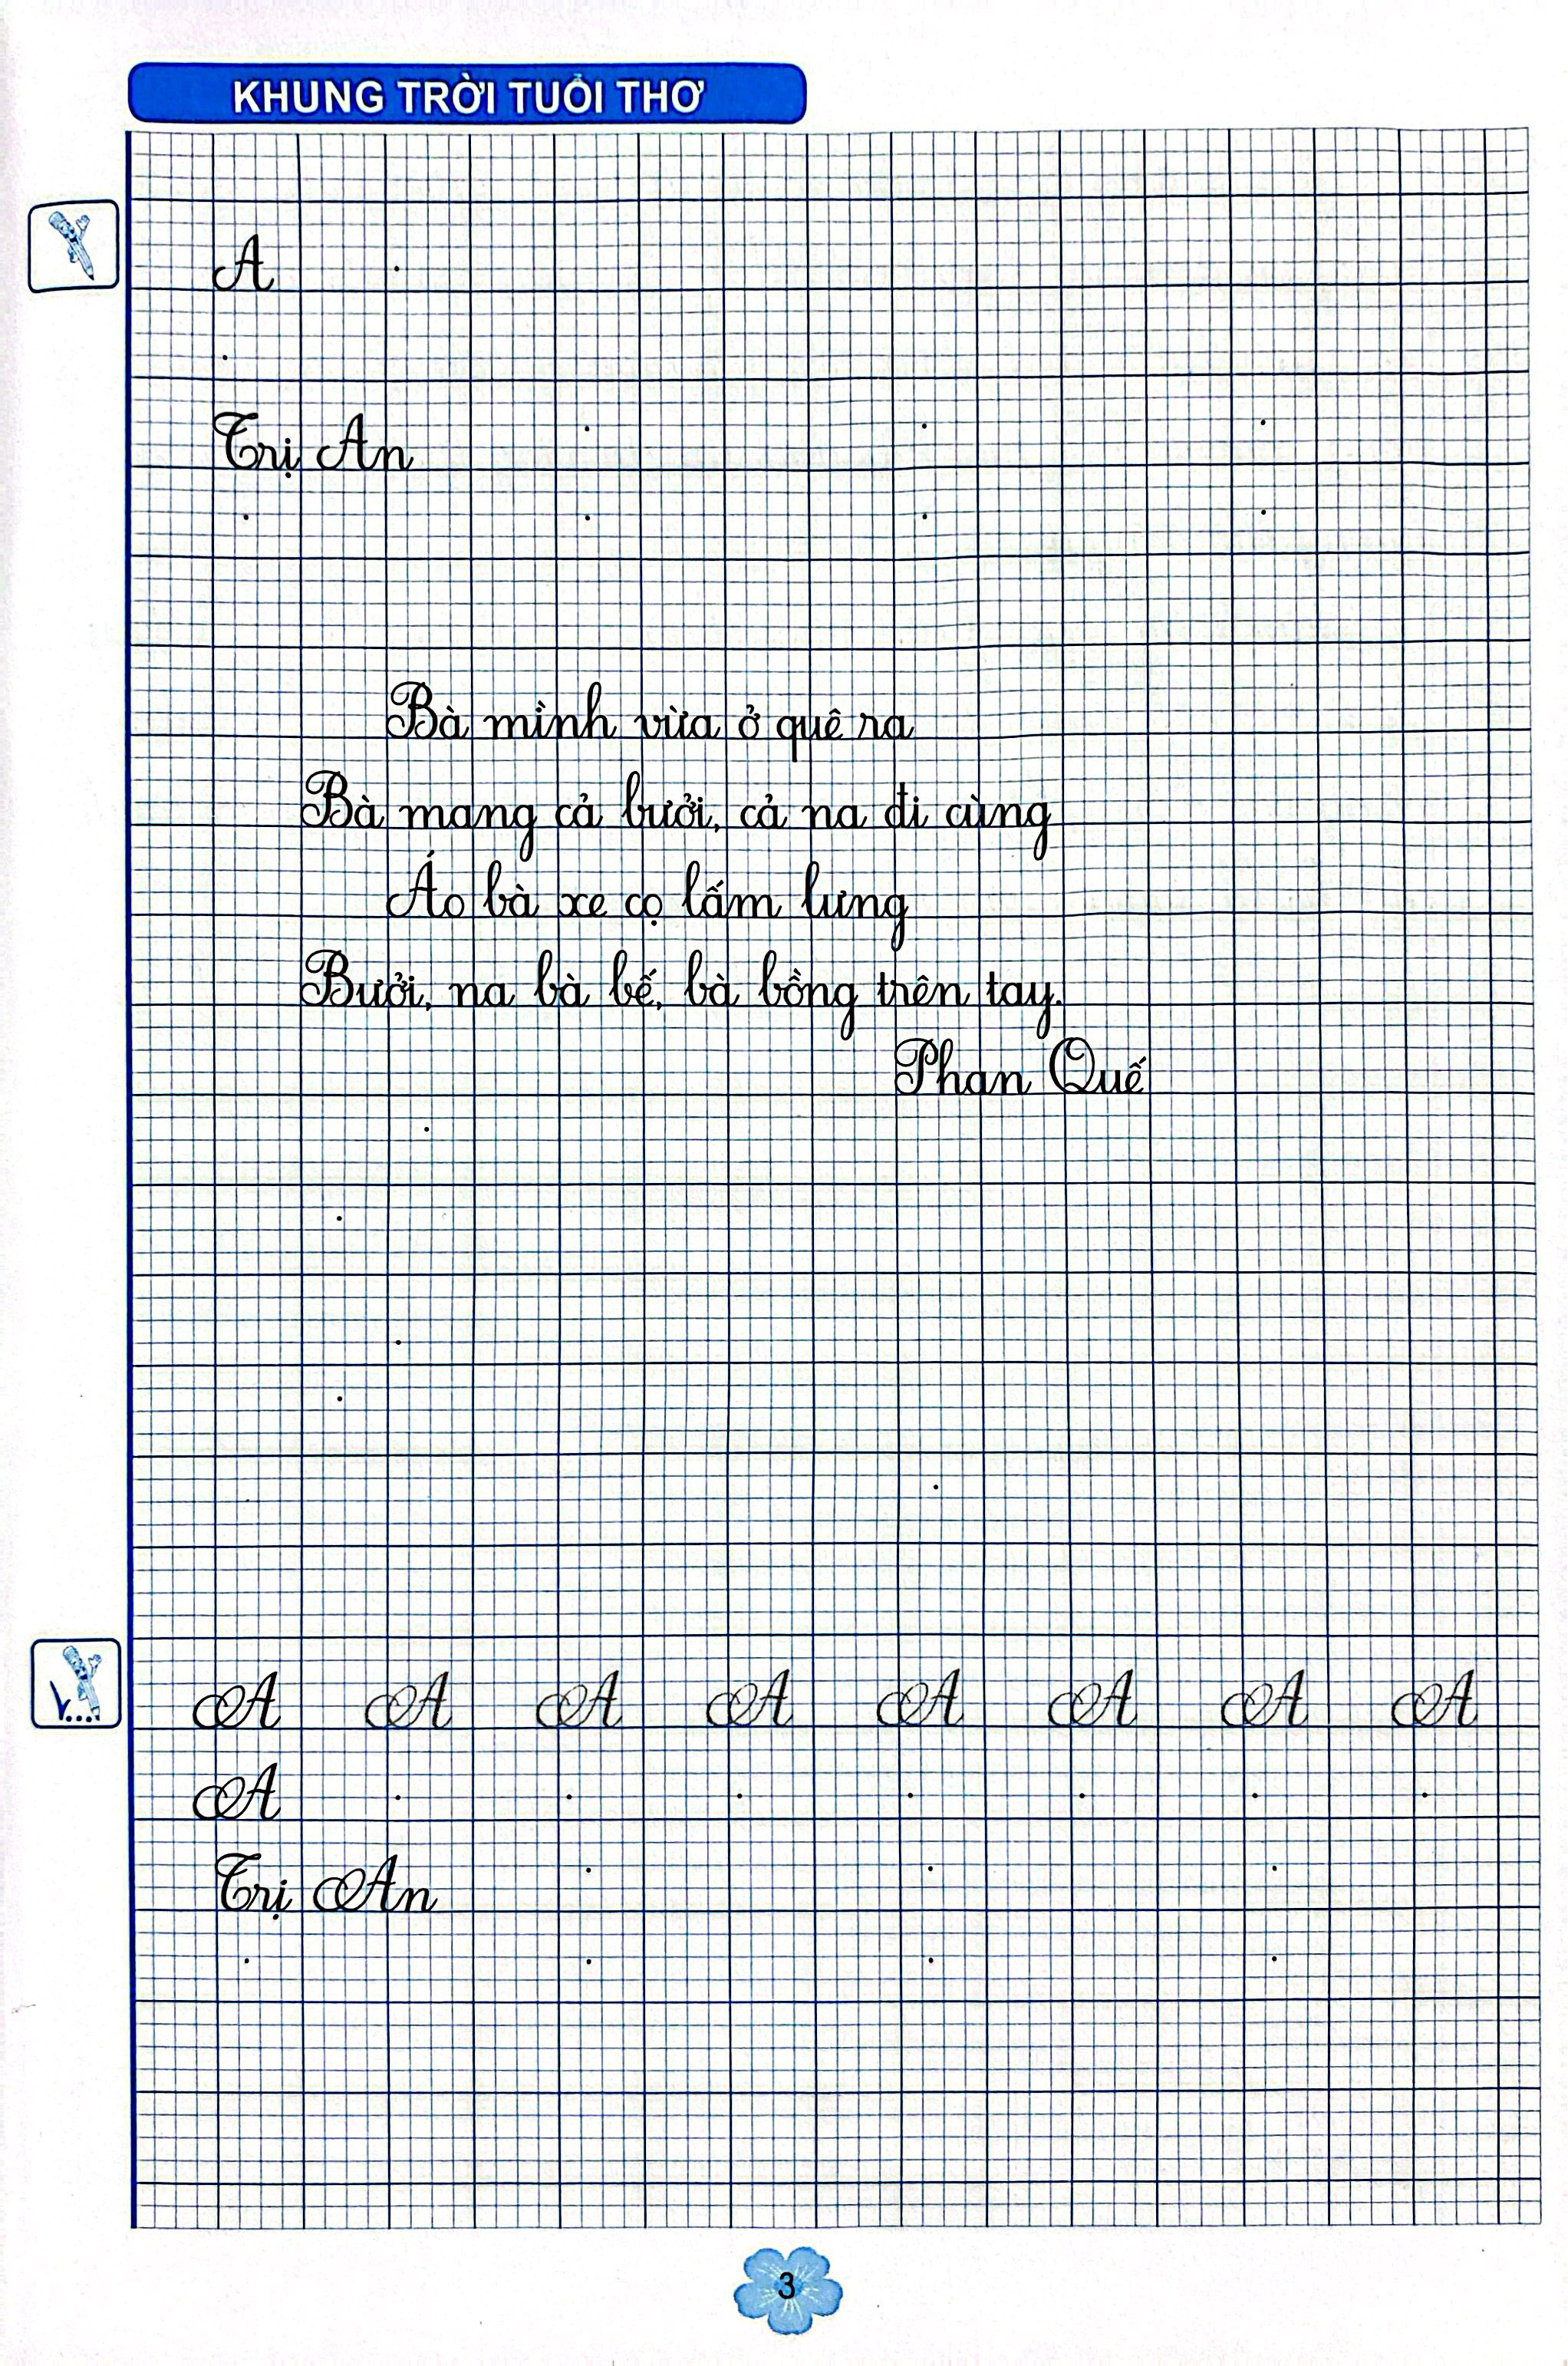 KHUNG TRỜI TUỔI THƠ
A
Trị An
Bà mình vừa ở quê ra
Bà mang cả bưởi, cả na đi cùng
Áo bà xe cọ lấm lưng
Bưởi, na bà bế, bà bồng trên tay.
Phan Quế
A A A A A A A A
A
Trị An
3